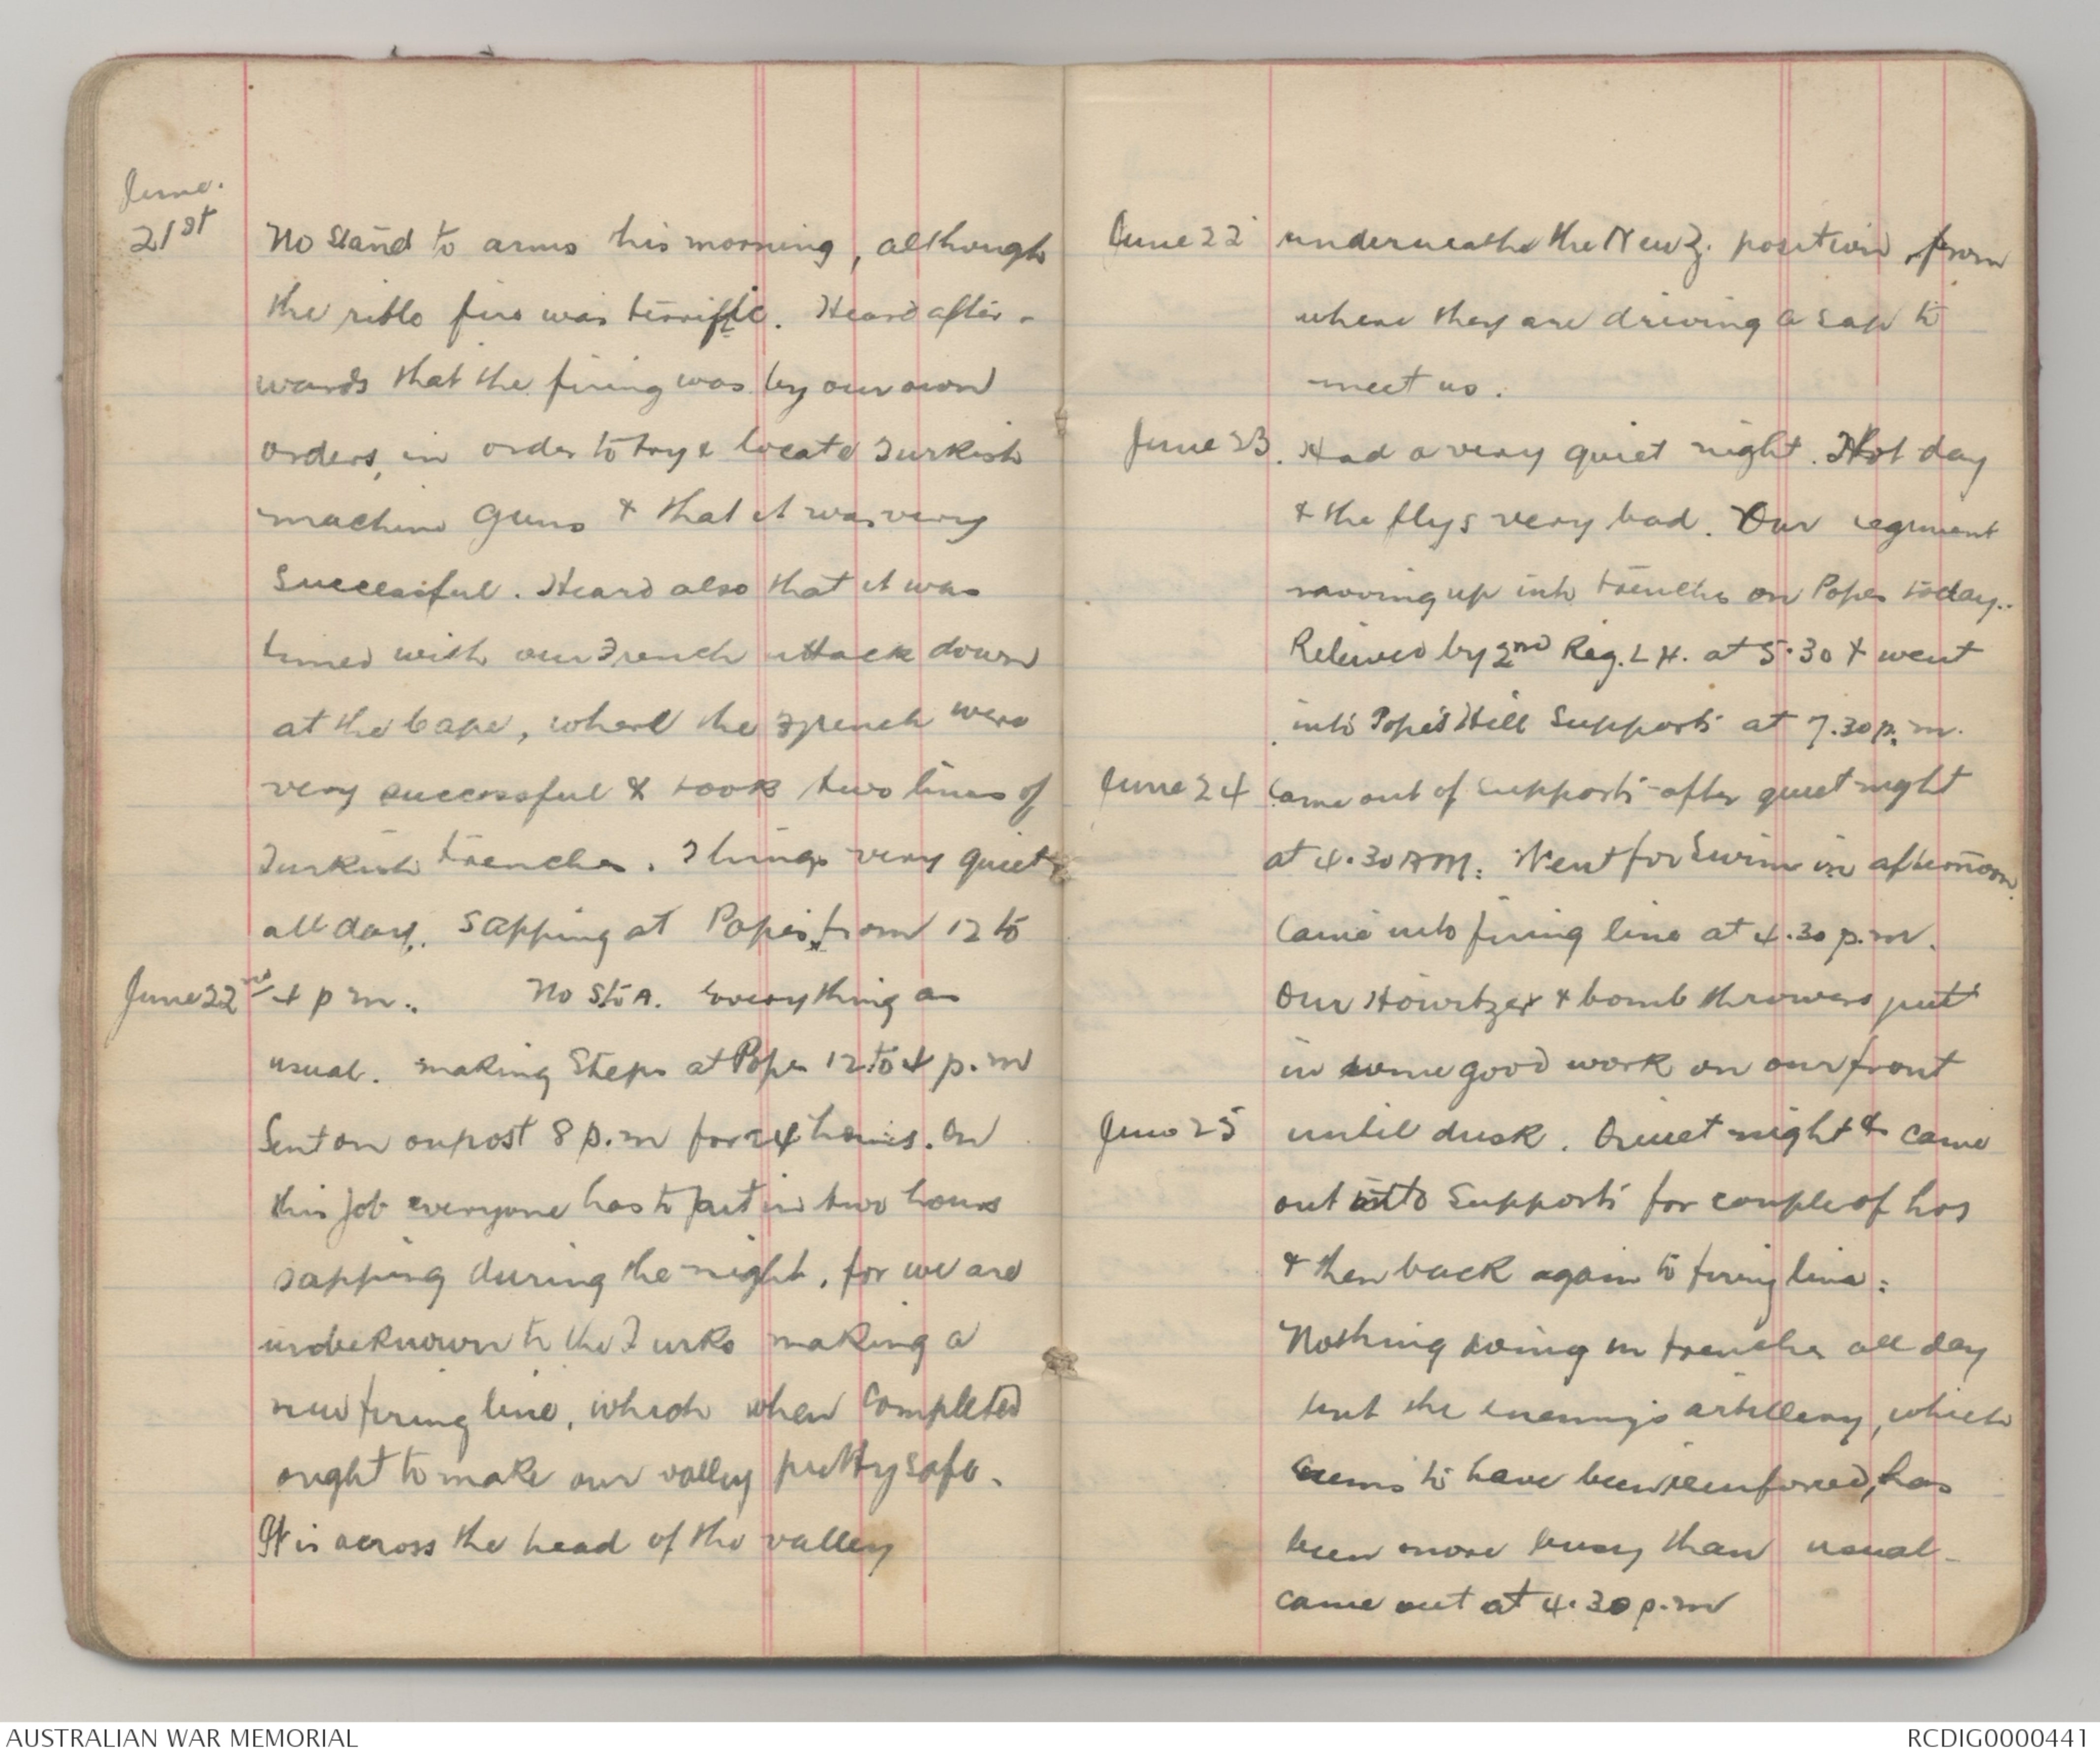 June.
21st No Stand to arms this morning, although
the rifle fire was terrific. Heard after-
wards that the firing was by our own
orders, in order to try & locate Turkish
machine guns & that it was very
Successful. Heard also that it was
timed with our French attack down
at the Cape, where the French were
very successful & took two lines of
Turkish trenches. Things very quiet
all day. Sapping at Popes from 12 to
June 22nd 4 p m. No St o A. Everything as
usual. making Steps at Popes 12 to 4 p.m
Sent on outpost 8 p.m for 24 hours. On
this job everyone has to put in two hours
sapping during the night, for we are
unbeknown to the Turks making a
new firing line, which when Completed
ought to make our valley pretty safe.
It is across the head of the valley
June 22 underneath the New Z. position, from
where they are driving a sap to
meet us.
June 23. Had a very quiet night. Hot day
& the flys very bad. Our regiment
moving up into trenches on Popes today.
Relieved by 2nd Reg. L H. at 5.30 & went
into Pope's Hill Supports at 7.30 p.m.
June 24 Came out of Supports after quiet night
at 4.30 AM. Went for Swim in afternoon.
Came into firing line at 4.30 p.m.
Our Howitzer & bomb throwers put
in some good work on our front
June 25 until dusk. Quiet night & came
out into Supports for couple of hrs
& then back again to firing line.
Nothing doing in trenches all day
but the enemy's artillery, which
seems to have been reinforced, has
been more busy than usual -
came out at 4.30 p.m
AUSTRALIAN WAR MEMORIAL
RCDIG0000441